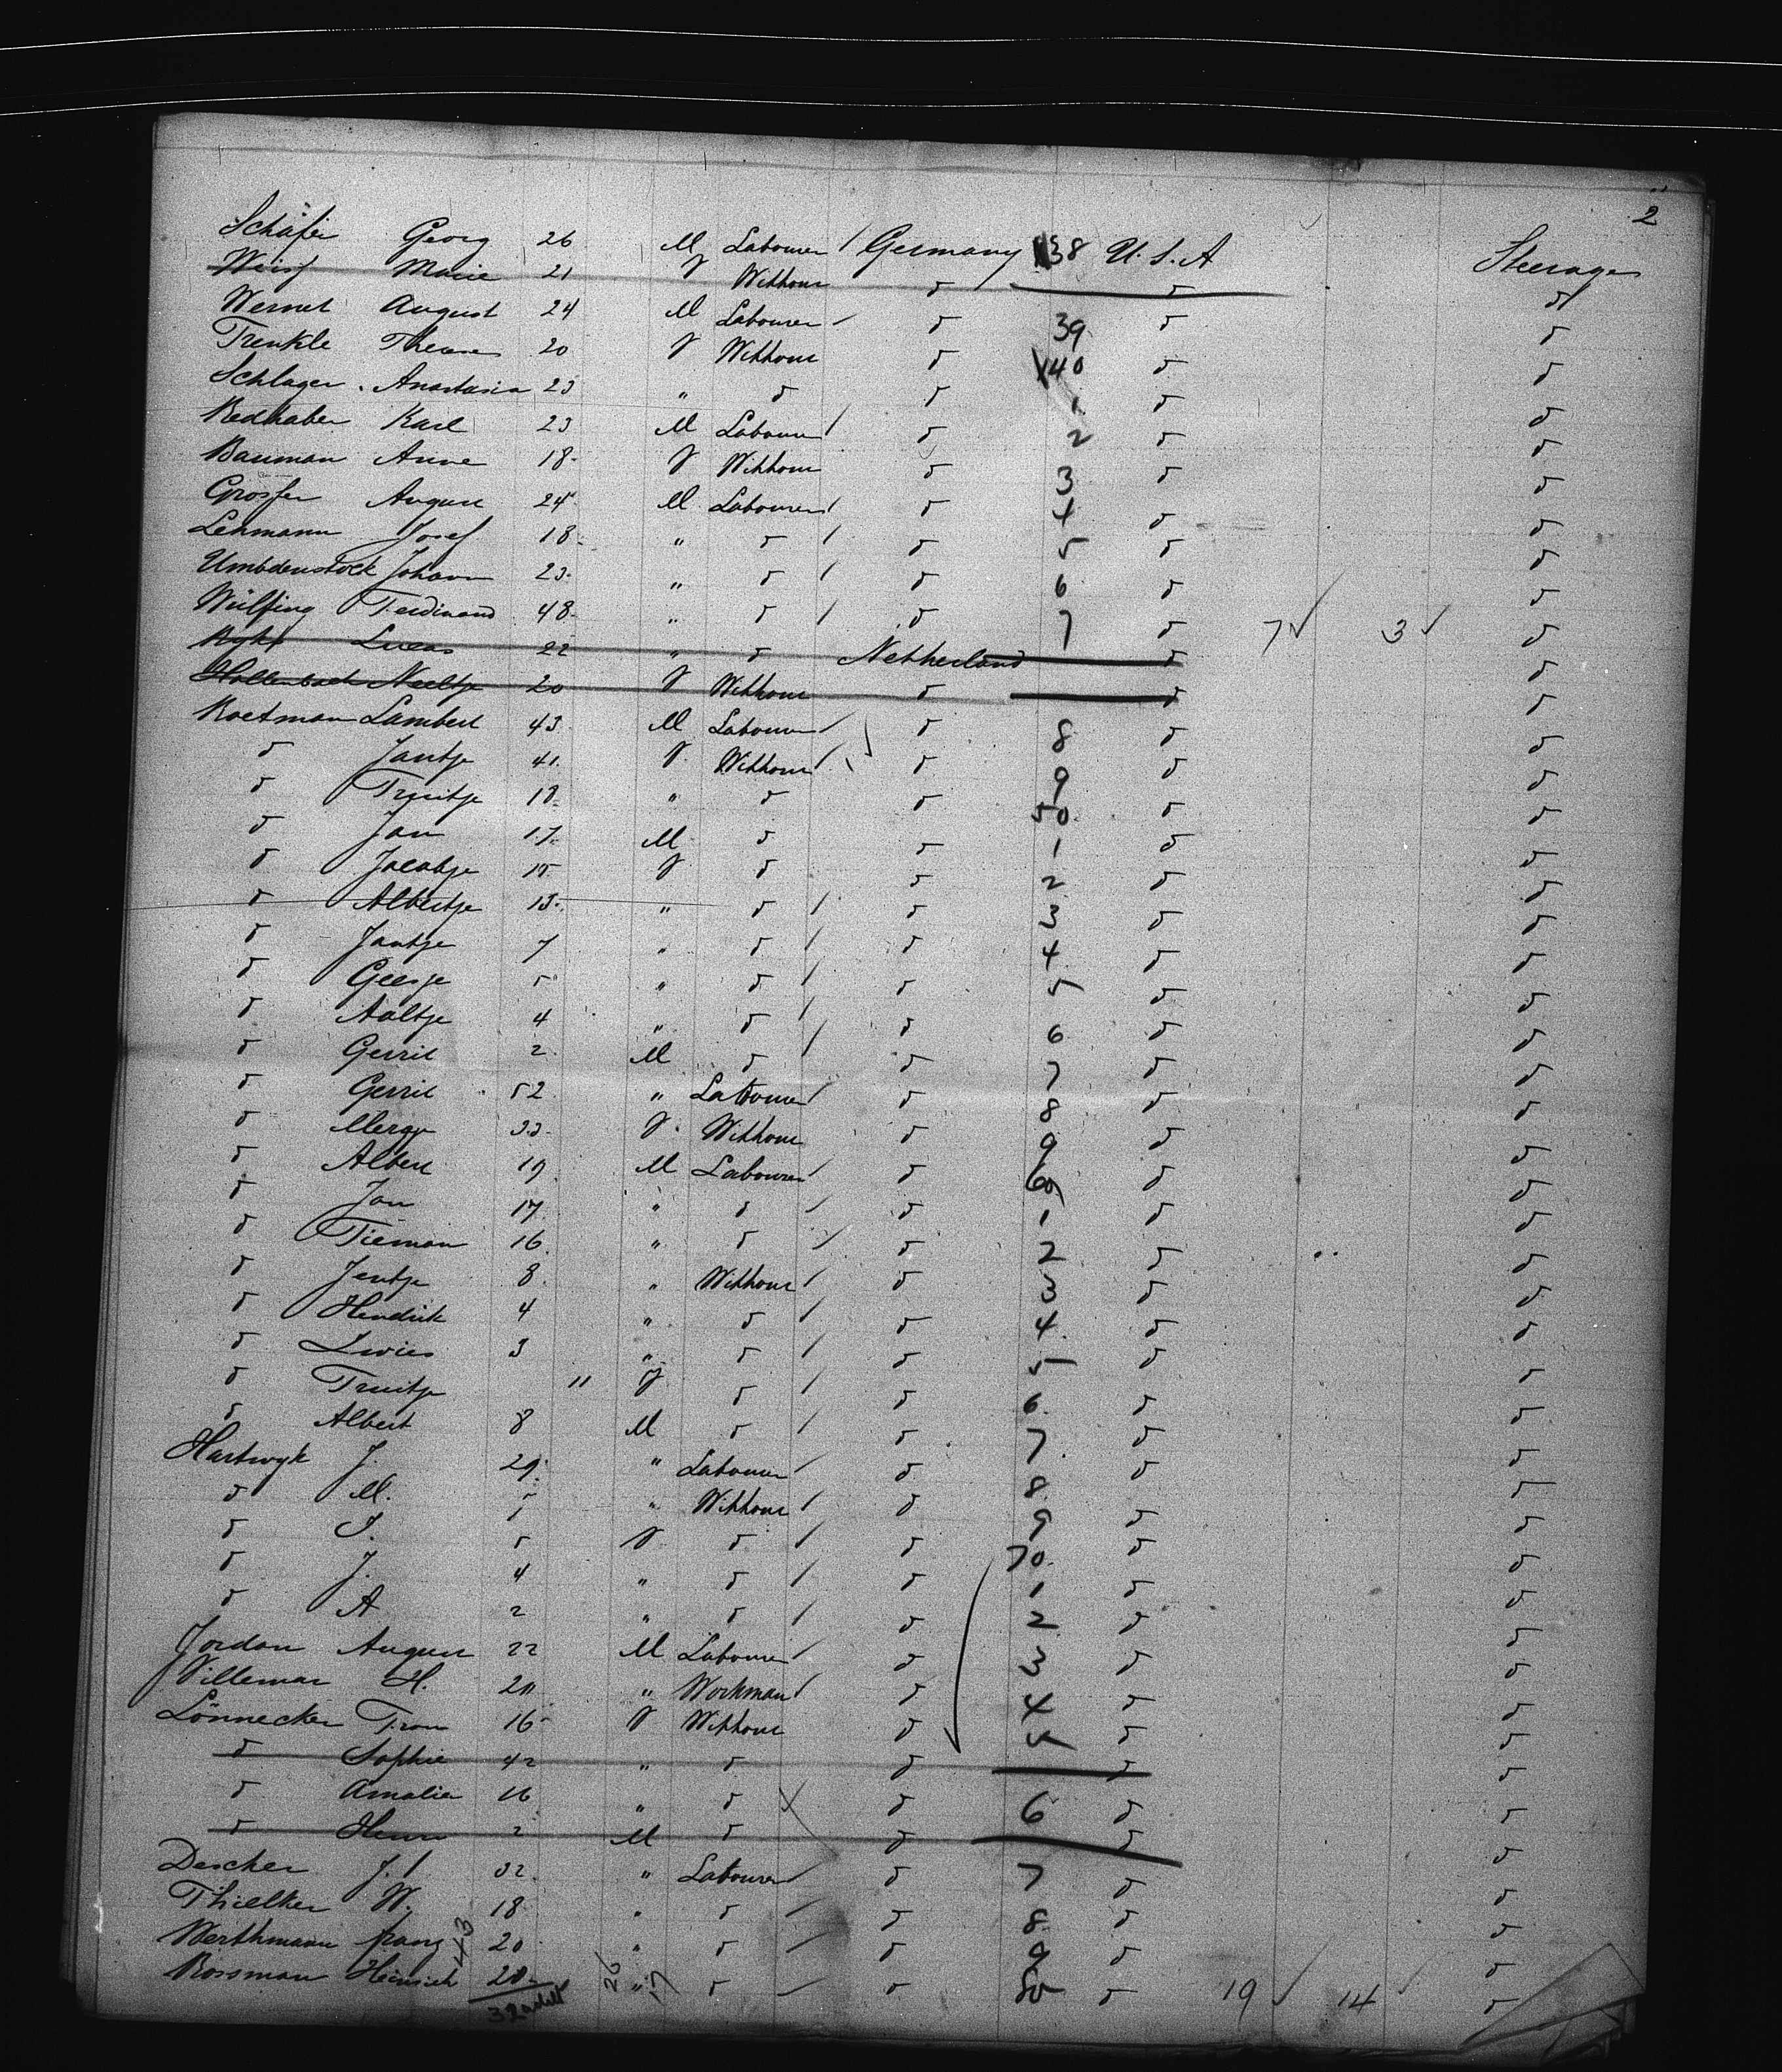 2
Schäfer Georg 26 M Labourer / Germany 138 U.S.A Steerage
Weiss Marie 21 V Without δ δ δ
Wernet August 24 M Labourer / δ 39 δ δ
Trenkle Therese 20 V Without δ 140 δ δ
Schlager Anastasia 23 " δ δ 1 δ δ
Redhaber Karl 23 M Labourer / δ 2 δ δ
Bauman Anne 18 V Without δ 3 δ δ
Grosser August 24 M Labourer / δ 4 δ δ
Lehmann Josef 18 " δ / δ 5 δ δ
Umbdenstock Johann 23 " δ / δ 6 δ δ
Wülfing Ferdinand 48 " δ / δ 7 δ 7 ✓ 3 ✓ δ
Lucas 22 " δ Netherland δ δ
Hollenbach Neeltje 20 V Without δ δ δ
Roetman Lambert 43 M Labourer / δ 8 δ δ
δ Jantje 41 V Without / δ 9 δ δ
δ Truitje 18 " δ δ 50 δ δ
δ Jan 17 M δ δ 1 δ δ
δ Jacobje 15 V δ δ 2 δ δ
δ Albertje 13 " δ / δ 3 δ δ
δ Jantje 7 " δ / δ 4 δ δ
δ Geesje 5 " δ / δ 5 δ δ
δ Aaltje 4 " δ / δ 6 δ δ
δ Gerrit 2 M δ / δ 7 δ δ
δ Gerrit 52 " Labourer / δ 8 δ δ
δ 33 V Without δ 9 δ δ
δ Albert 19 M Labourer / δ 60 δ δ
δ Jan 17 " δ / δ 1 δ δ
δ Tieman 16 " δ / δ 2 δ δ
δ Jentje 8 " Without / δ 3 δ δ
δ Hendrik 4 " δ / δ 4 δ δ
δ 3 " δ / δ 5 δ δ
δ Truitje 11 V δ / δ 6 δ δ
δ Albert 8 M δ / δ 7 δ δ
Hartwyk J. 29 " Labourer / δ 8 δ δ
δ M. 7 " Without / δ 9 δ δ
δ 5 V δ / δ 70 δ δ
δ J. 4 " δ / δ 1 δ δ
δ A 2 " δ / δ 2 δ δ
Jordan August 22 M Labourer / δ 3 δ δ
Villemar H. 20 " Workman / δ 4 δ δ
Lönnecker 16 V Without δ 5 δ δ
δ Sophie 42 " δ δ δ δ
δ Amalia 16 " δ δ 6 δ δ
δ 2 M δ δ δ δ
Descher J. 32 " Labourer / δ 7 δ δ
Thielker W. 18 " δ / δ 8 δ δ
Werthmann Franz 20 " δ / δ 9 δ δ
Rossman Heinrich 28 " δ / δ 80 δ 19 ✓ 14 ✓ δ
43 26 17
32 adult